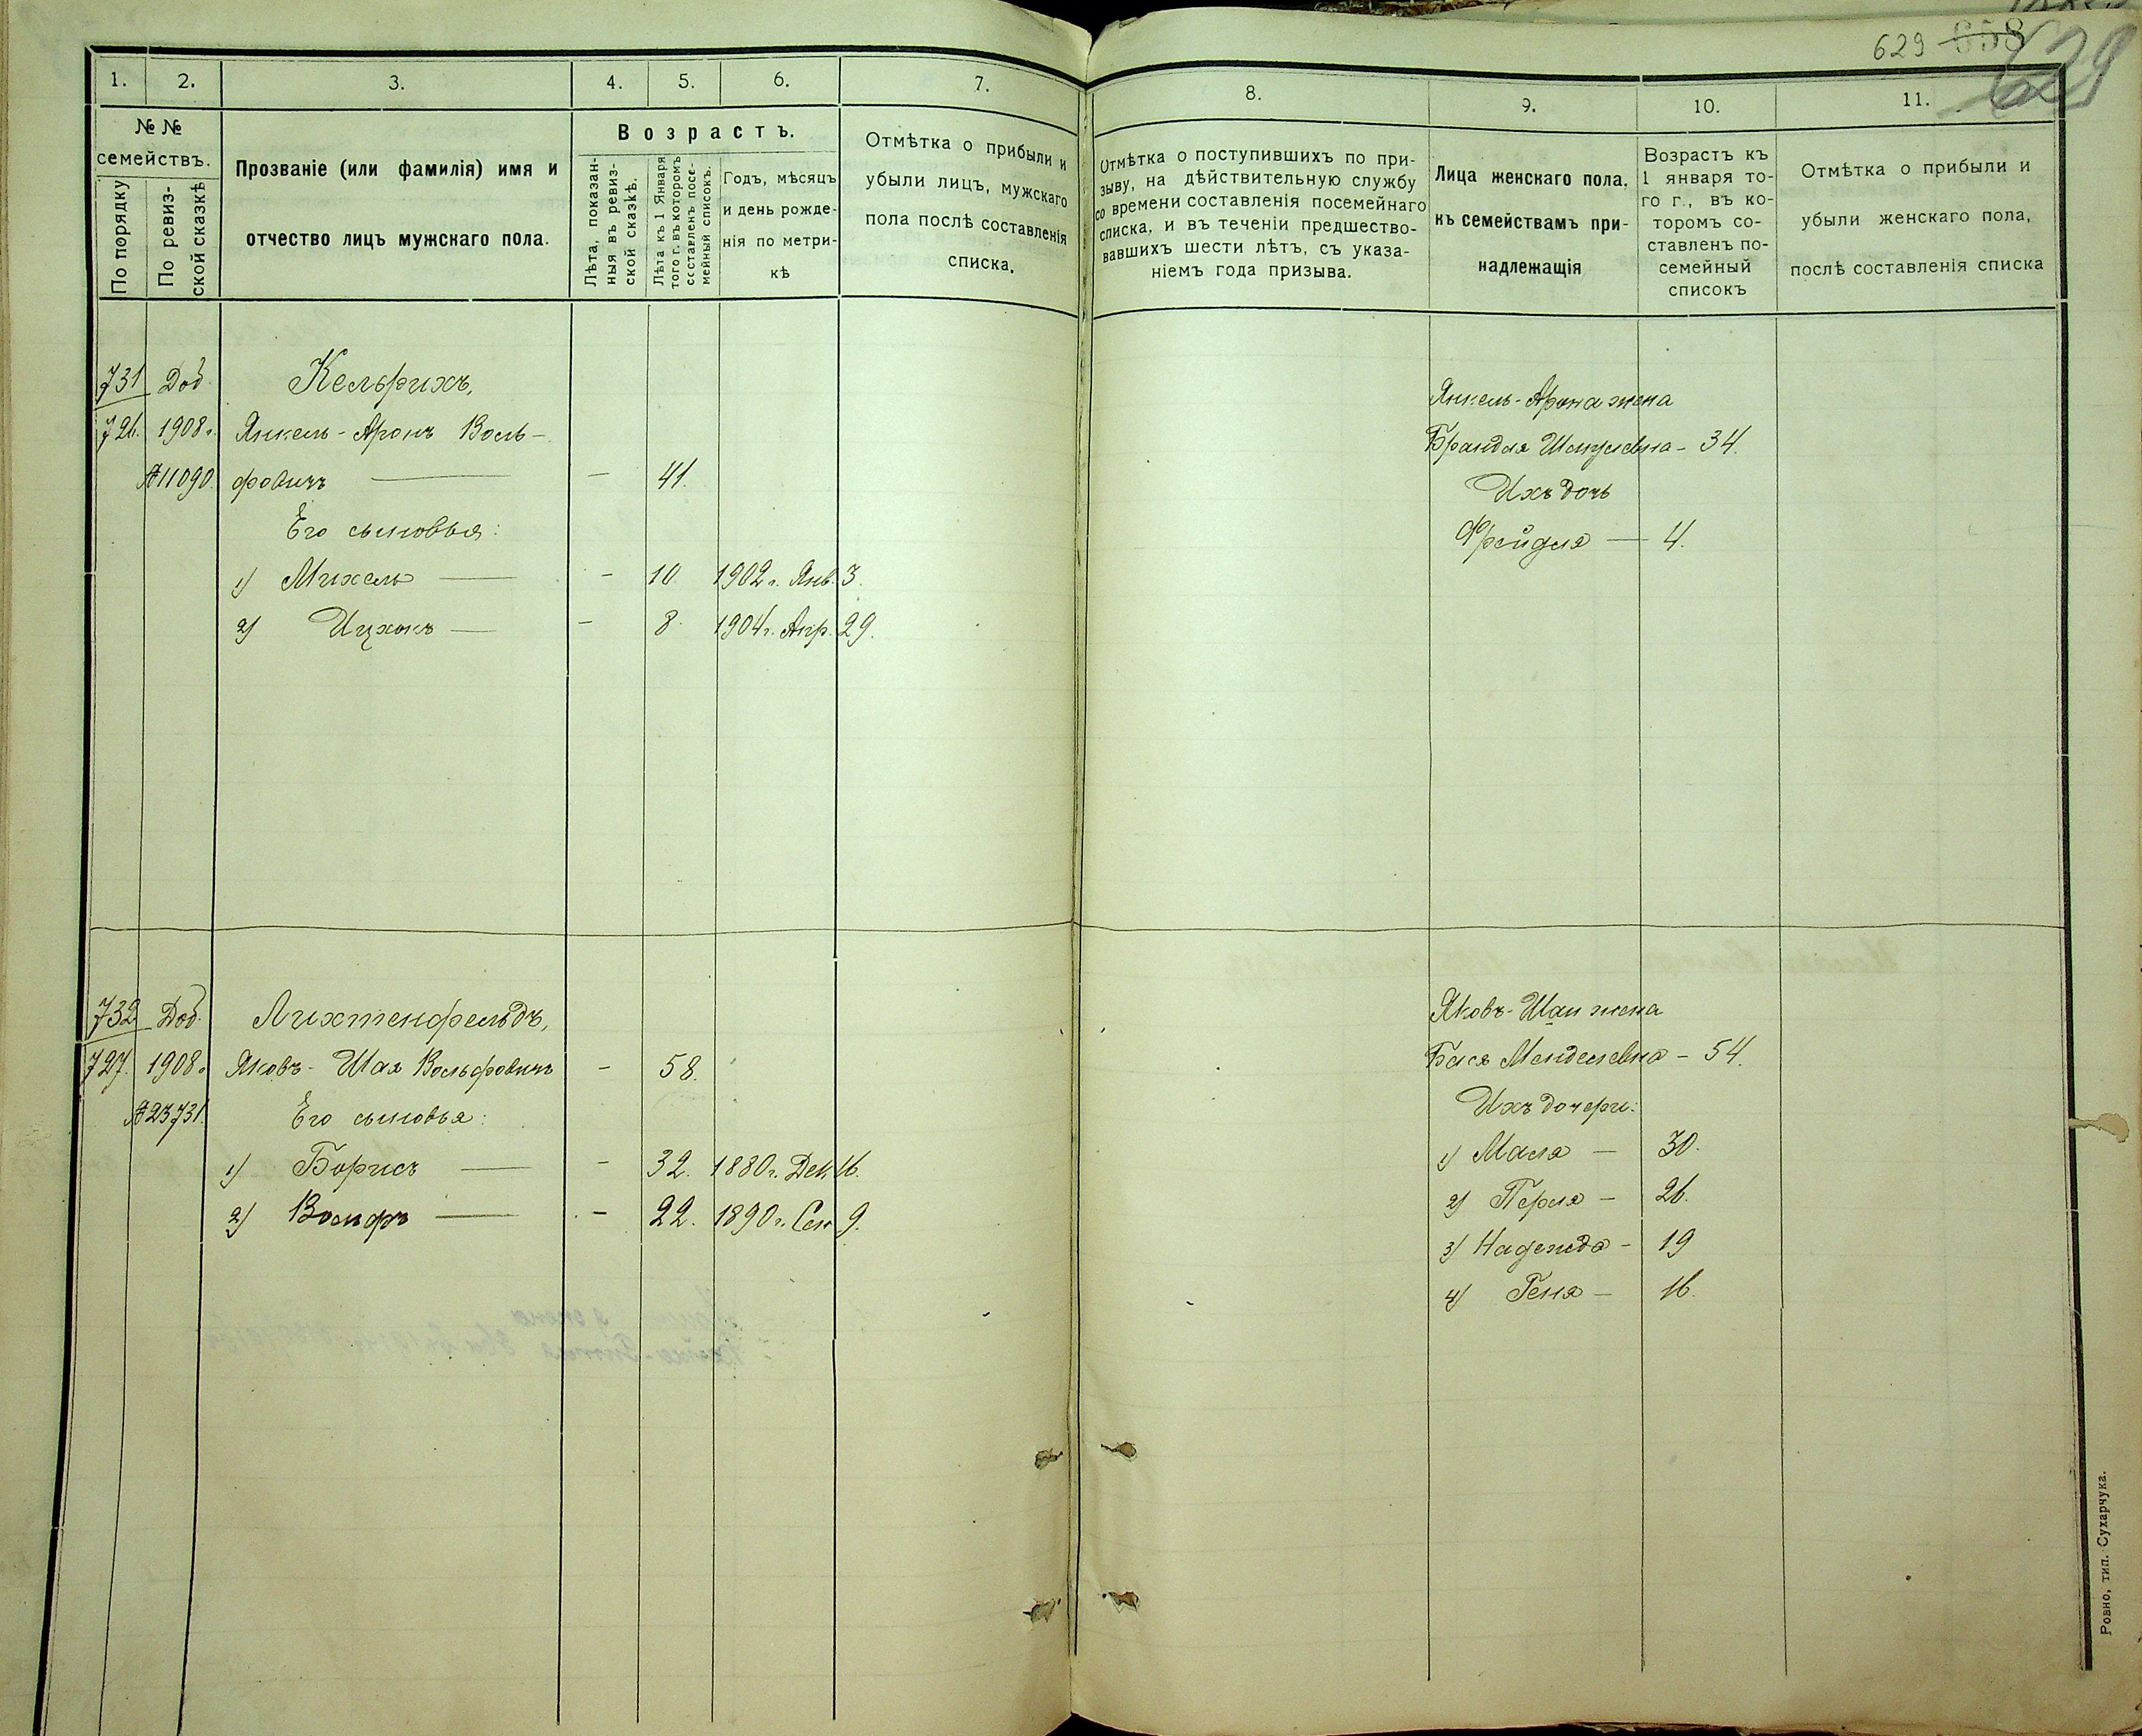 629 858
629
1. 2. 3. 4. 5. 6. 7.
№ №
семействъ.
По порядку
По ревиз-
ской сказкѣ
Прозваніе (или фамилія) имя и
отчество лицъ мужскаго пола.
Возрастъ.
Лѣта, показан-
ныя въ ревиз-
ской сказкѣ.
Лѣта къ 1 Января
того г. въ которомъ
составленъ посе-
мейный списокъ.
Годъ, мѣсяцъ
и день рожде-
нія по метри-
кѣ
Отмѣтка о прибыли и
убыли лицъ, мужскаго
пола послѣ составленія
списка.
731 Доб. Кельрихъ,
726. 1908 г. Янкель-Аронъ Воль-
№ 11090. фовичъ — — 41.
Его сыновья:
1) Михель — — 10 1902 г. Янв. 3.
2) Ицхокъ — — 8. 1904 г. Апр. 29.
732 Доб. Лихтенфельдъ,
727. 1908 г. Яковъ-Шая Вольфовичъ — 58.
№ 23731. Его сыновья:
1) Борисъ — — 32. 1880 г. Дек. 16.
2) Вольфъ — — 22. 1890 г. Сен. 9.
8. 9. 10. 11.
Отмѣтка о поступившихъ по при-
зыву, на дѣйствительную службу
со времени составленія посемейнаго
списка, и въ теченіи предшество-
вавшихъ шести лѣтъ, съ указа-
ніемъ года призыва.
Лица женскаго пола,
къ семействамъ при-
надлежащія
Возрастъ къ
1 января то-
го г., въ ко-
торомъ со-
ставленъ по-
семейный
списокъ
Отмѣтка о прибыли и
убыли женскаго пола,
послѣ составленія списка
Янкель-Арона жена
Брандля Шмулевна - 34.
Ихъ дочь
Фрейдля — 4.
Яковъ-Шаи жена
Бася Менделевна - 54.
Ихъ дочери:
1) Маля — 30.
2) Перля — 26.
3) Надежда - 19
4) Геня — 16.
Ровно, тип. Сухарчука.